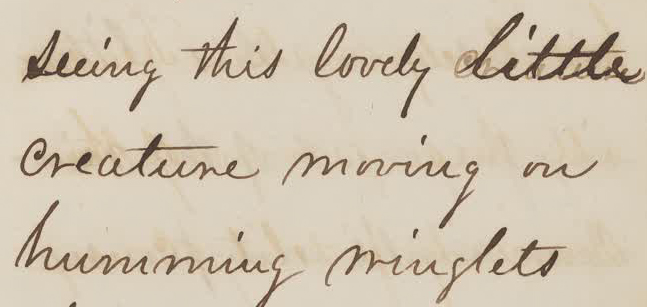 seeing this lovely little
creature moving on
humming winglets